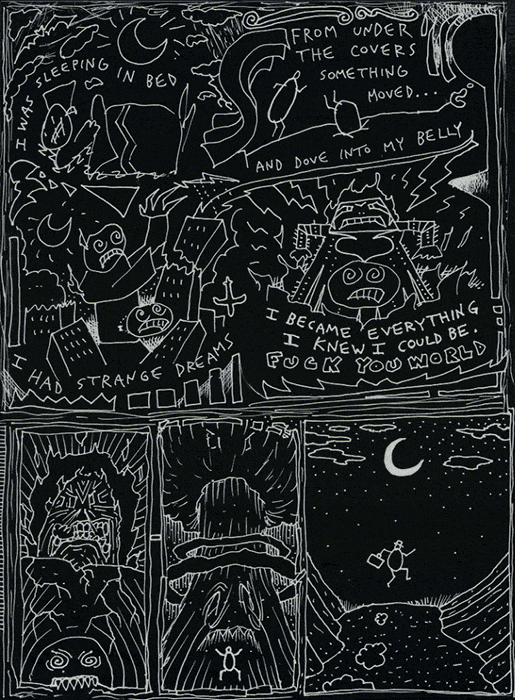 I WAS SLEEPING IN BED
FROM UNDER
THE COVERS
SOMETHING
MOVED...
AND DOVE INTO MY BELLY
I HAD STRANGE DREAMS
I BECAME EVERYTHING
I KNEW I COULD BE.
FUCK YOU WORLD